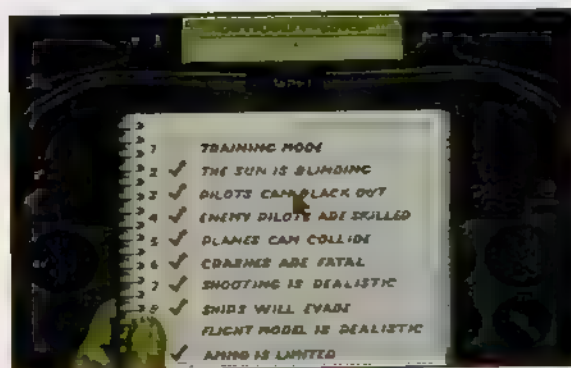 1 TRAINING MODE
2 ✓ THE SUN IS BLINDING
3 ✓ PILOTS CAN BLACK OUT
4 ✓ ENEMY PILOTS ARE SKILLED
5 ✓ PLANES CAN COLLIDE
6 ✓ CRASHES ARE FATAL
7 ✓ SHOOTING IS REALISTIC
8 ✓ SHIPS WILL EVADE
FLIGHT MODEL IS REALISTIC
✓ AMMO IS LIMITED